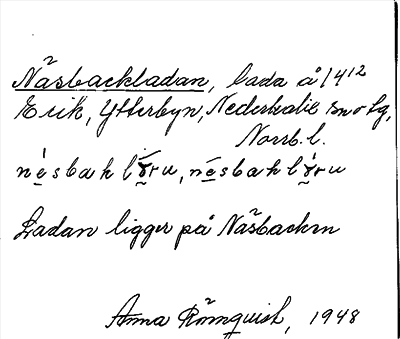 Näsbackladan, lada å 14¹²
Erik, Ytterbyn, Nederkalix sn o tg,
Norrb. l.
Ladan ligger på Näsbacken
Anna Rönnquist, 1948